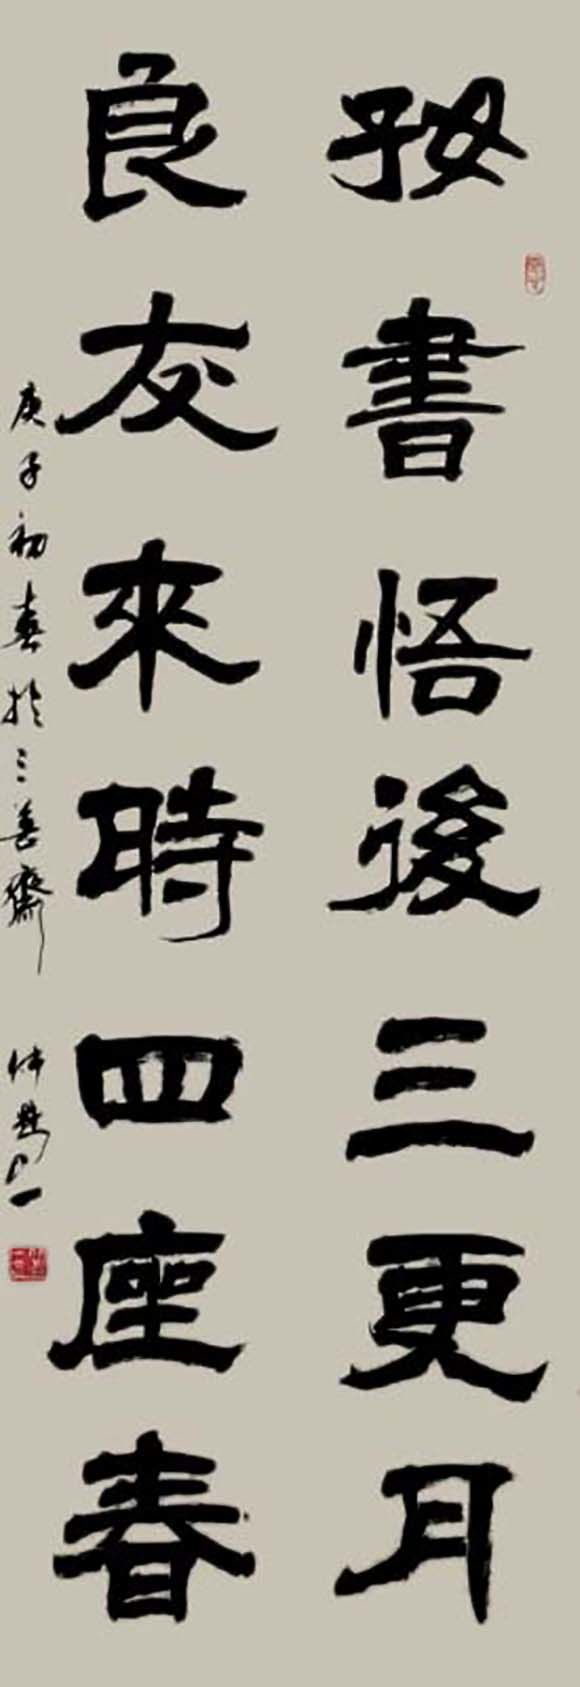 好書悟後三更月
良友來時四座春
庚子初春於三善齋